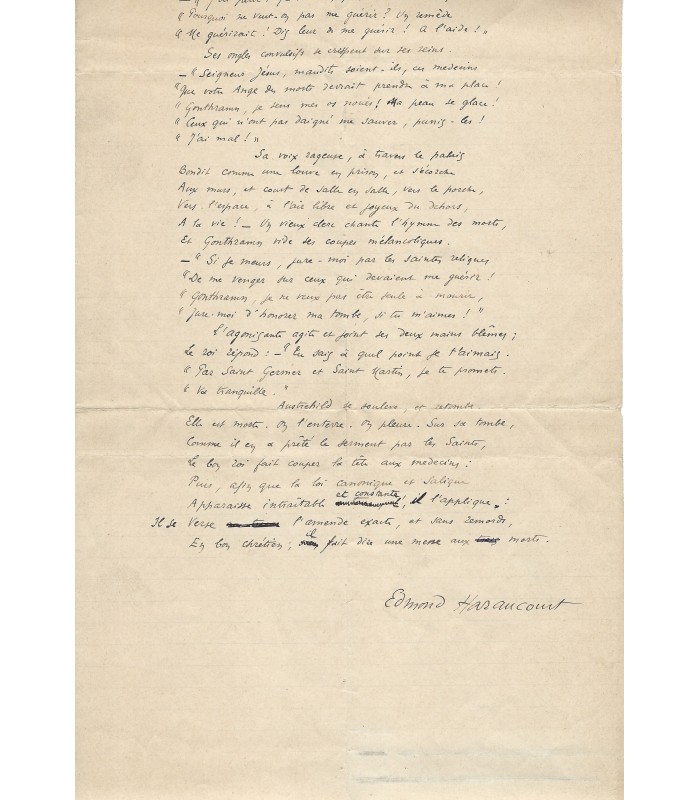 "Pourquoi ne veut-on pas me guérir ? Un remède
"Me guérirait ! Dis leur de me guérir ! A l'aide ! "
Ses ongles convulsifs se crispent sur ses reins.
— "Seigneur Jésus, maudits soient-ils, ces medecins
"Que votre Ange des morts devrait prendre à ma place !
"Gonthramn, je sens mes os noués ! Ma peau se glace !
"Ceux qui n'ont pas daigné me sauver, punis-les !
"J'ai mal ! "
Sa voix rageuse, à travers le palais
Bondit comme une louve en prison, et s'écorche
Aux murs, et court de salle en salle, vers le porche,
Vers l'espace, à l'air libre et joyeux du dehors,
A la vie ! — Un vieux clerc chante l'hymne des morts,
Et Gonthramn vide ses coupes mélancoliques.
— "Si je meurs, jure-moi par les saintes reliques
"De me venger sur ceux qui devaient me guérir !
"Gonthramn, je ne veux pas être seule à mourir,
"Jure-moi d'honorer ma tombe, si tu m'aimes ! "
L'agonisante agite et joint ses deux mains blêmes ;
Le roi répond : — "Tu sais à quel point je t'aimais.
"Par Saint Germer et Saint Martin, je te promets.
"Va tranquille. "
Austrechild se soulève, et retombe.
Elle est morte. On l'enterre. On pleure. Sur sa tombe,
Comme il en a prêté le serment par les Saints,
Le bon roi fait couper la tête aux medecins :
Puis, afin que la loi canonique et salique
Apparaisse intraitable et constante, il l'applique :
Il se Verse l'amende exacte, et sans remords,
En bon chrétien, il fait dire une messe aux morts.
Edmond Haraucourt